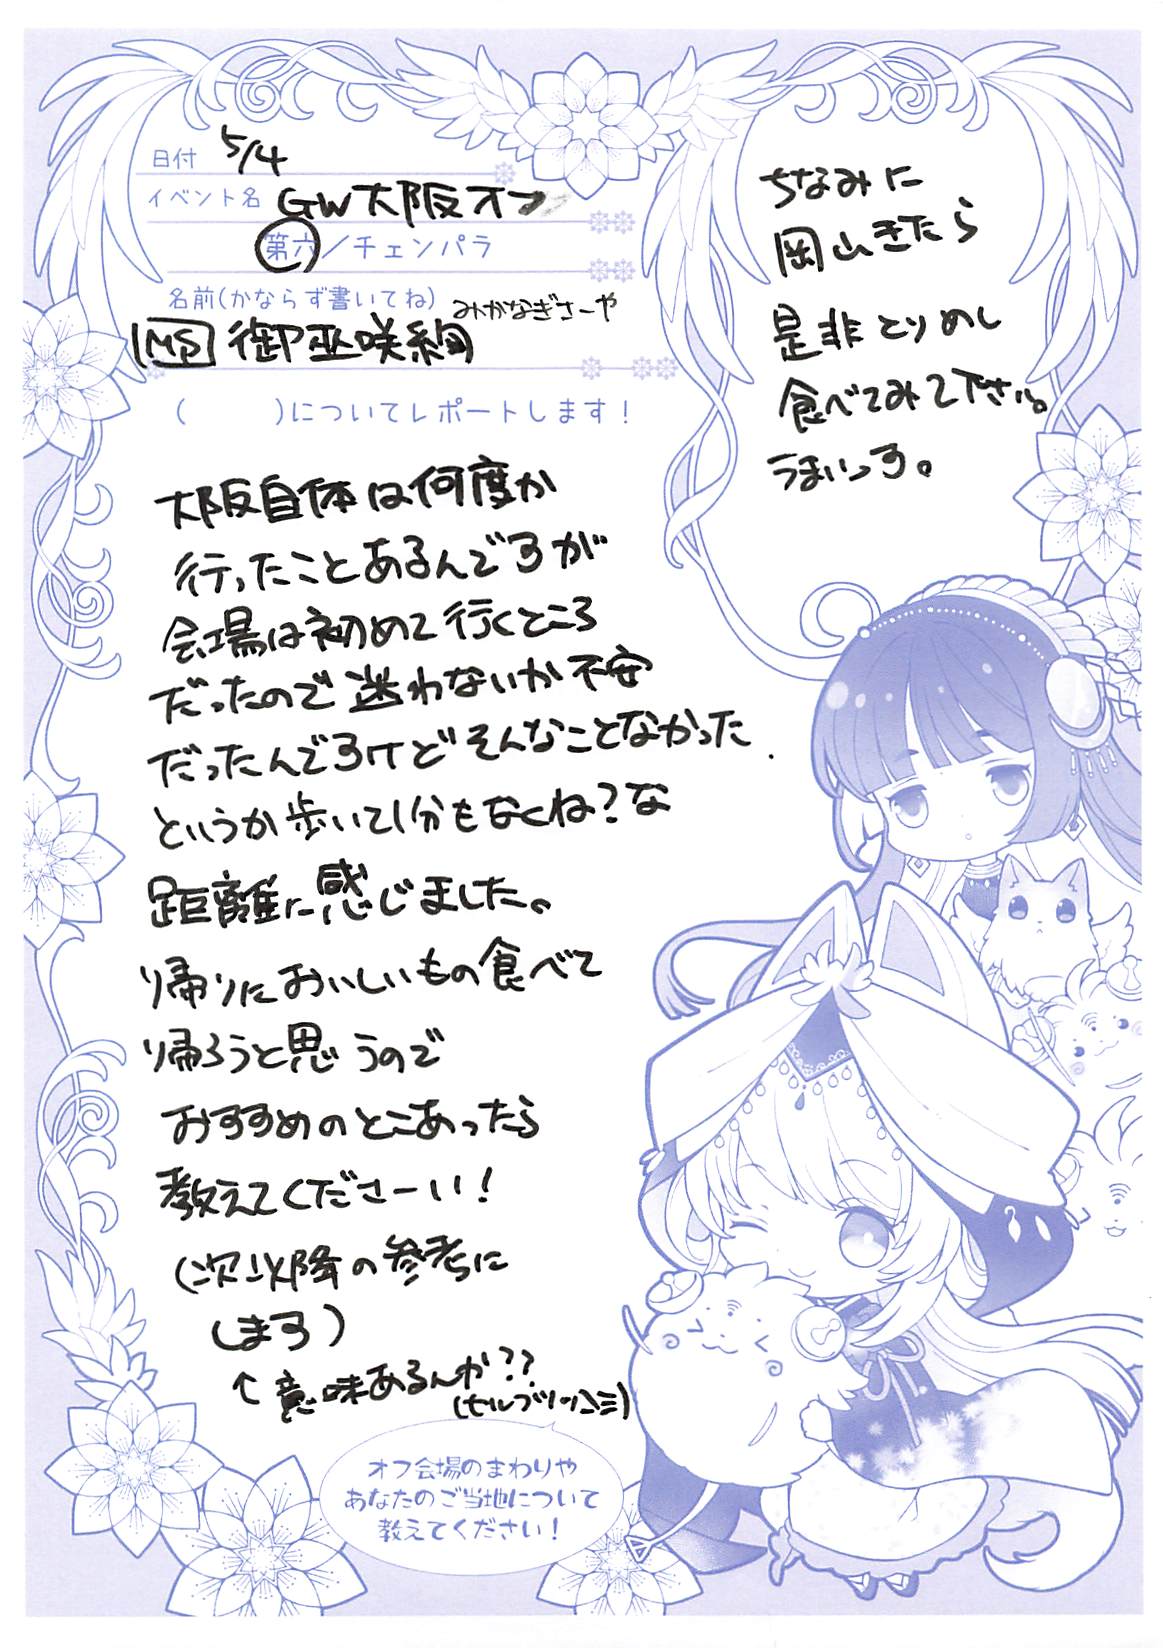 日付 5/4
イベント名 GW大阪オフ
第六／チェンパラ
名前(かならず書いてね) みかなぎさーや
MS 御巫咲絢
(　　　)についてレポートします！
大阪自体は何度か
行ったことあるんですが
会場は初めて行くところ
だったので迷わないか不安
だったんですけどそんなことなかった
というか歩いて1分もなくね？な
距離に感じました。
帰りにおいしいもの食べて
帰ろうと思うので
おすすめのとこあったら
教えてくださーい！
(次以降の参考に
します)
↑意味あるんか??
(セルフツッコミ)
ちなみに
岡山きたら
是非とりめし
食べてみて下さい。
うまいっす。
オフ会場のまわりや
あなたのご当地について
教えてください！